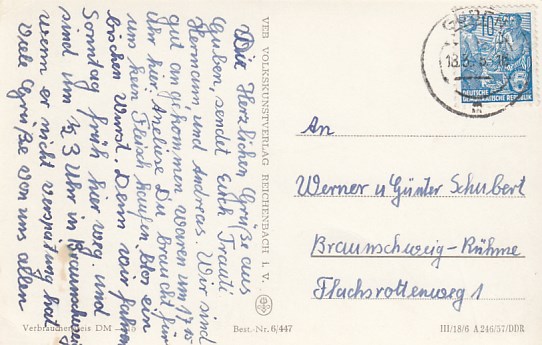 Die Herzlichen Grüße aus
Guben, sendet Euch Trauti
Hermann, und Andreas. Wir sind
gut angekommen waren um 17
Uhr hier. Aneliese Du brauchst für
uns kein Fleisch kaufen blos ein
bischen Wurst. Denn wir fahren
Sonntag früh hier weg und
sind um 1/2 3 Uhr in Braunschweig
wenn er nicht verspätung hat
Viele Grüße von uns allen
VEB VOLKSKUNSTVERLAG REICHENBACH I. V.
GUBEN
18.3.
10
DEUTSCHE
DEMOKRATISCHE REPUBLIK
An
Werner u Günter Schubert
Braunschweig-Rühme
Flachsrottenweg 1
Verbraucherpreis DM
Best.-Nr. 6/447
III/18/6 A 246/57/DDR